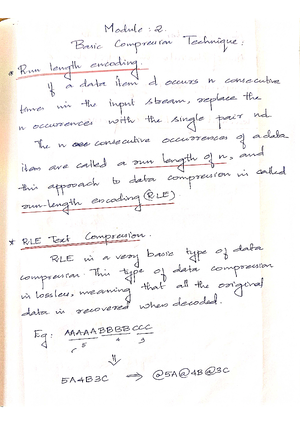 Module : 2.
Basic Compression Technique :
* Run length encoding.
If a data item d occurs n consecutive
times in the input stream, replace the
n occurrences with the single pair nd.
The n consecutive occurrences of a data
item are called a run length of n, and
this approach to data compression is called
run-length encoding (RLE)
* RLE Text Compression.
RLE is a very basic type of data
compression. This type of data compression
is lossless, meaning that all the original
data is recovered when decoded.
Eg : AAAAABBBBCCC
5 4 3
⇓
5A4B3C ⇒ @5A@4B@3C